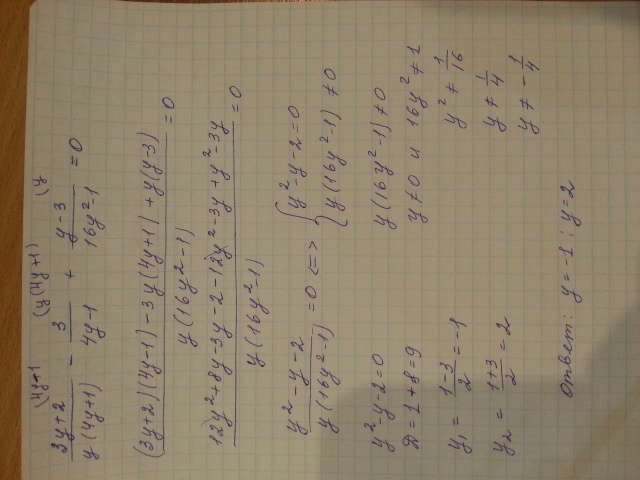 (4y+1 (y(4y+1) (y
3y+2/y(4y+1) - 3/4y-1 + y-3/16y²-1 = 0
(3y+2)(4y-1) - 3y(4y+1) + y(y-3)/y(16y²-1) = 0
12y²+8y-3y-2-12y²-3y+y²-3y/y(16y²-1) = 0
y²-y-2/y(16y²-1) = 0 <=> { y²-y-2=0
{ y(16y²-1) ≠ 0
y²-y-2=0
D = 1+8=9
y₁ = 1-3/2 = -1
y₂ = 1+3/2 = 2
y(16y²-1) ≠ 0
y ≠ 0 и 16y² ≠ 1
y² ≠ 1/16
y ≠ 1/4
y ≠ -1/4
Ответ: y=-1; y=2